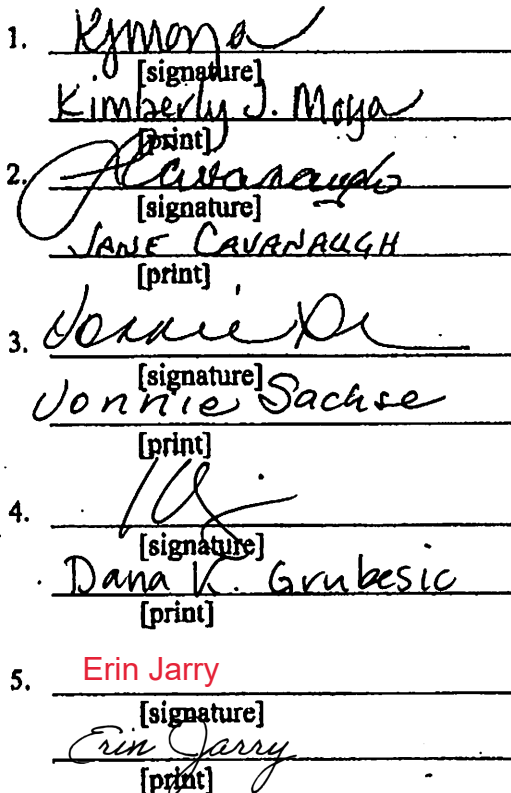 1. KJMoya
[signature]
Kimberly J. Moya
[print]
2. JCavanaugh
[signature]
JANE CAVANAUGH
[print]
3. Vonnie
[signature]
Vonnie Sachse
[print]
4.
[signature]
Dana K. Grubesic
[print]
5. Erin Jarry
[signature]
Erin Jarry
[print]